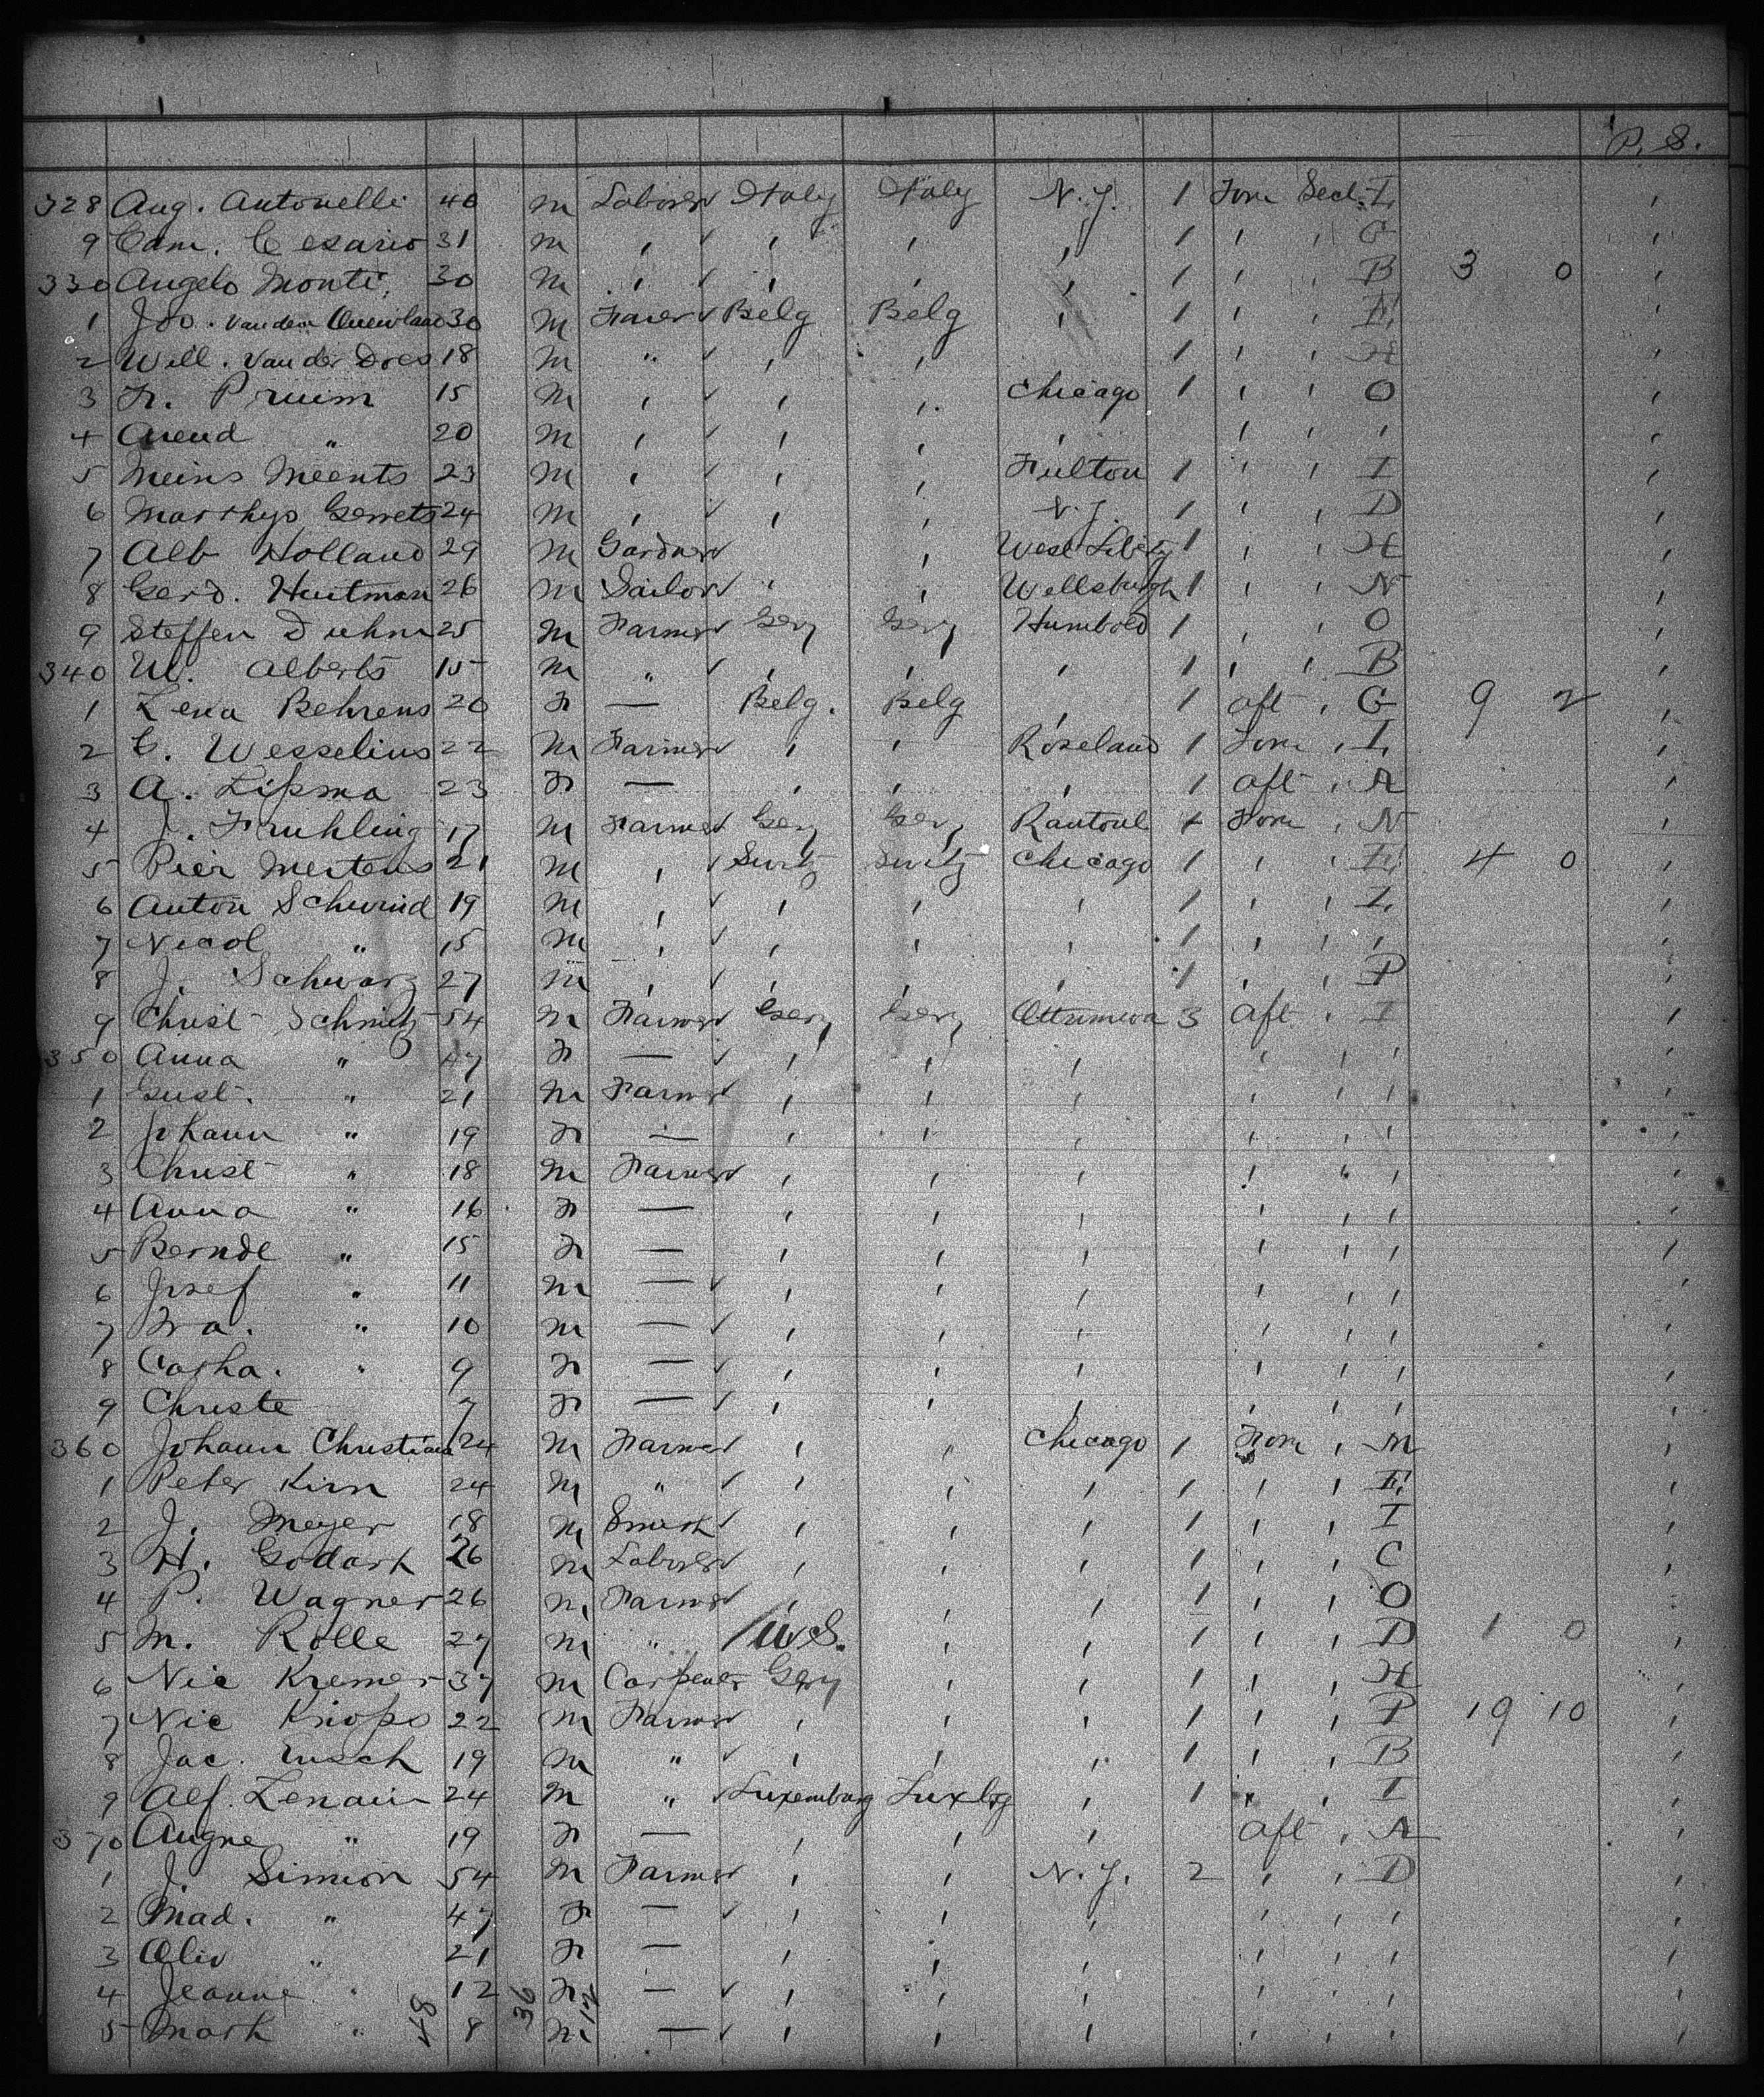 P. S.
328 Aug. Antonelli 40 m Laborer Italy Italy N.Y. 1 Forw Sect. L
9 Cam. Cesario 31 m , , , , 1 , , G
330 Angelo Monti 30 m , , , , 1 , , B 3 0 ,
1 Joo. van den 30 m Belg Belg , 1 , , E ,
2 Will. van der Does 18 m " , , 1 , , H ,
3 Fr. Pruim 15 m , , , Chicago 1 , , O ,
4 Arend " 20 m , , , , 1 , , , ,
5 Meins Meents 23 m , , , Fulton 1 , , I ,
6 Matthys Gerrets 24 m , , , N.Y. 1 , , D ,
7 Alb Holland 29 m Gardner , West Liberty 1 , , H ,
8 Gerd. Huitman 26 m Sailor " , Wellsburgh 1 , , N ,
9 Steffen Duhm 25 m Farmer Gery Gery Humbold 1 , , O ,
340 W. Alberts 15 m " , , , 1 , , B ,
1 Lena Behrens 20 F — Belg. Belg , 1 aft , G 9 2 ,
2 C. Wesselius 22 m Farmer , , Roseland 1 Forw , L ,
3 A. Lipsma 23 F — , , , 1 aft , A ,
4 J. Fruhling 17 m Farmer Gery Gery Rantoul 1 Forw , N ,
5 Pier Mertens 21 m , Switz Switz Chicago 1 , , E 4 0 ,
6 Anton Schwind 19 m , , , , 1 , , L ,
7 Nicol " 15 m , , , , 1 , , , ,
8 J. Schwarz 27 m , , , , 1 , , P ,
9 Christ Schmitz 54 m Farmer Gery Gery Ottumwa 3 aft , I ,
350 Anna " 47 F — , , , , , , ,
1 Gust. " 21 m Farmer , , , , , , ,
2 Johann " 19 F — , , , , , , ,
3 Christ " 18 m Farmer , , , , " , ,
4 Anna " 16 F — , , , , , , ,
5 Berndt " 15 F — , , , , , , ,
6 Josef " 11 m — , , , , , , ,
7 Fra. " 10 m — , , , , , , ,
8 Catha. " 9 F — , , , , , , ,
9 Christe 7 F — , , , , , , ,
360 Johann Christian 24 m Farmer , , Chicago 1 Forw , M ,
1 Peter Kirn 24 m " , , , 1 , , E ,
2 J. Meyer 18 m Smith , , , 1 , , I ,
3 H. Godart 26 m Laborer , , , 1 , , C ,
4 P. Wagner 26 m Farmer , , , 1 , , O ,
5 M. Rolle 27 m " U.S. , , 1 , , D 1 0 ,
6 Nic Kremer 37 m Carpenter Gery , , 1 , , H ,
7 Nic Knops 22 m Farmer , , , 1 , , P 19 10 ,
8 Jac. 19 m " , , , 1 , , B ,
9 Alf. Lenain 24 m " Luxemburg Luxbg , 1 " , I ,
370 Augne " 19 F — , , , aft , A ,
1 J. Simion 54 m Farmer , , N.Y. 2 , , D ,
2 Mad. " 47 F — , , , , , , ,
3 Oliv " 21 F — , , , , , , ,
4 Jeanne " 12 F — , , , , , , ,
5 Math " 8 m — , , , , , , ,
48 36 12